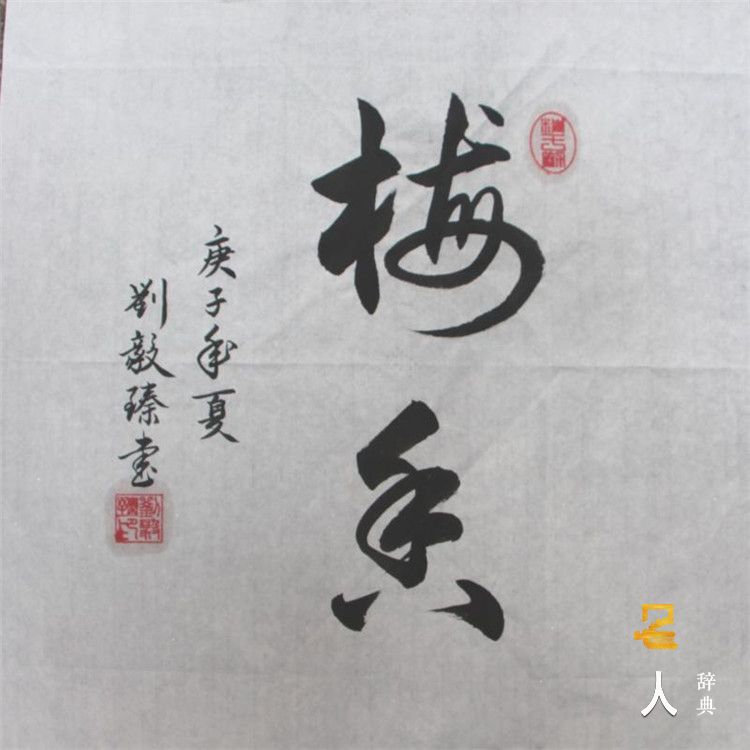 梅香
庚子年夏
劉毅臻書
名人
辞典